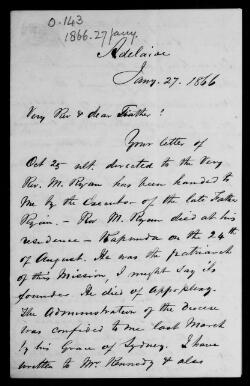 O.143
1866.27 Jany.
Adelaide
Jany. 27. 1866
Very Rev & dear Father!
Your letter of
Oct 25 ult. directed to the Very
Rev. M. Ryan has been handed to
me by the Executor of the late Father
Ryan. - Rev M. Ryan died at his
residence - Kapunda on the 24th
of August. He was the patriarch
of this Mission, I might say its
founder. He died of Appoplexy.
The Administration of the diocese
was confided to me last March
by his Grace of Sydney. I have
written to Mr Kennedy & also